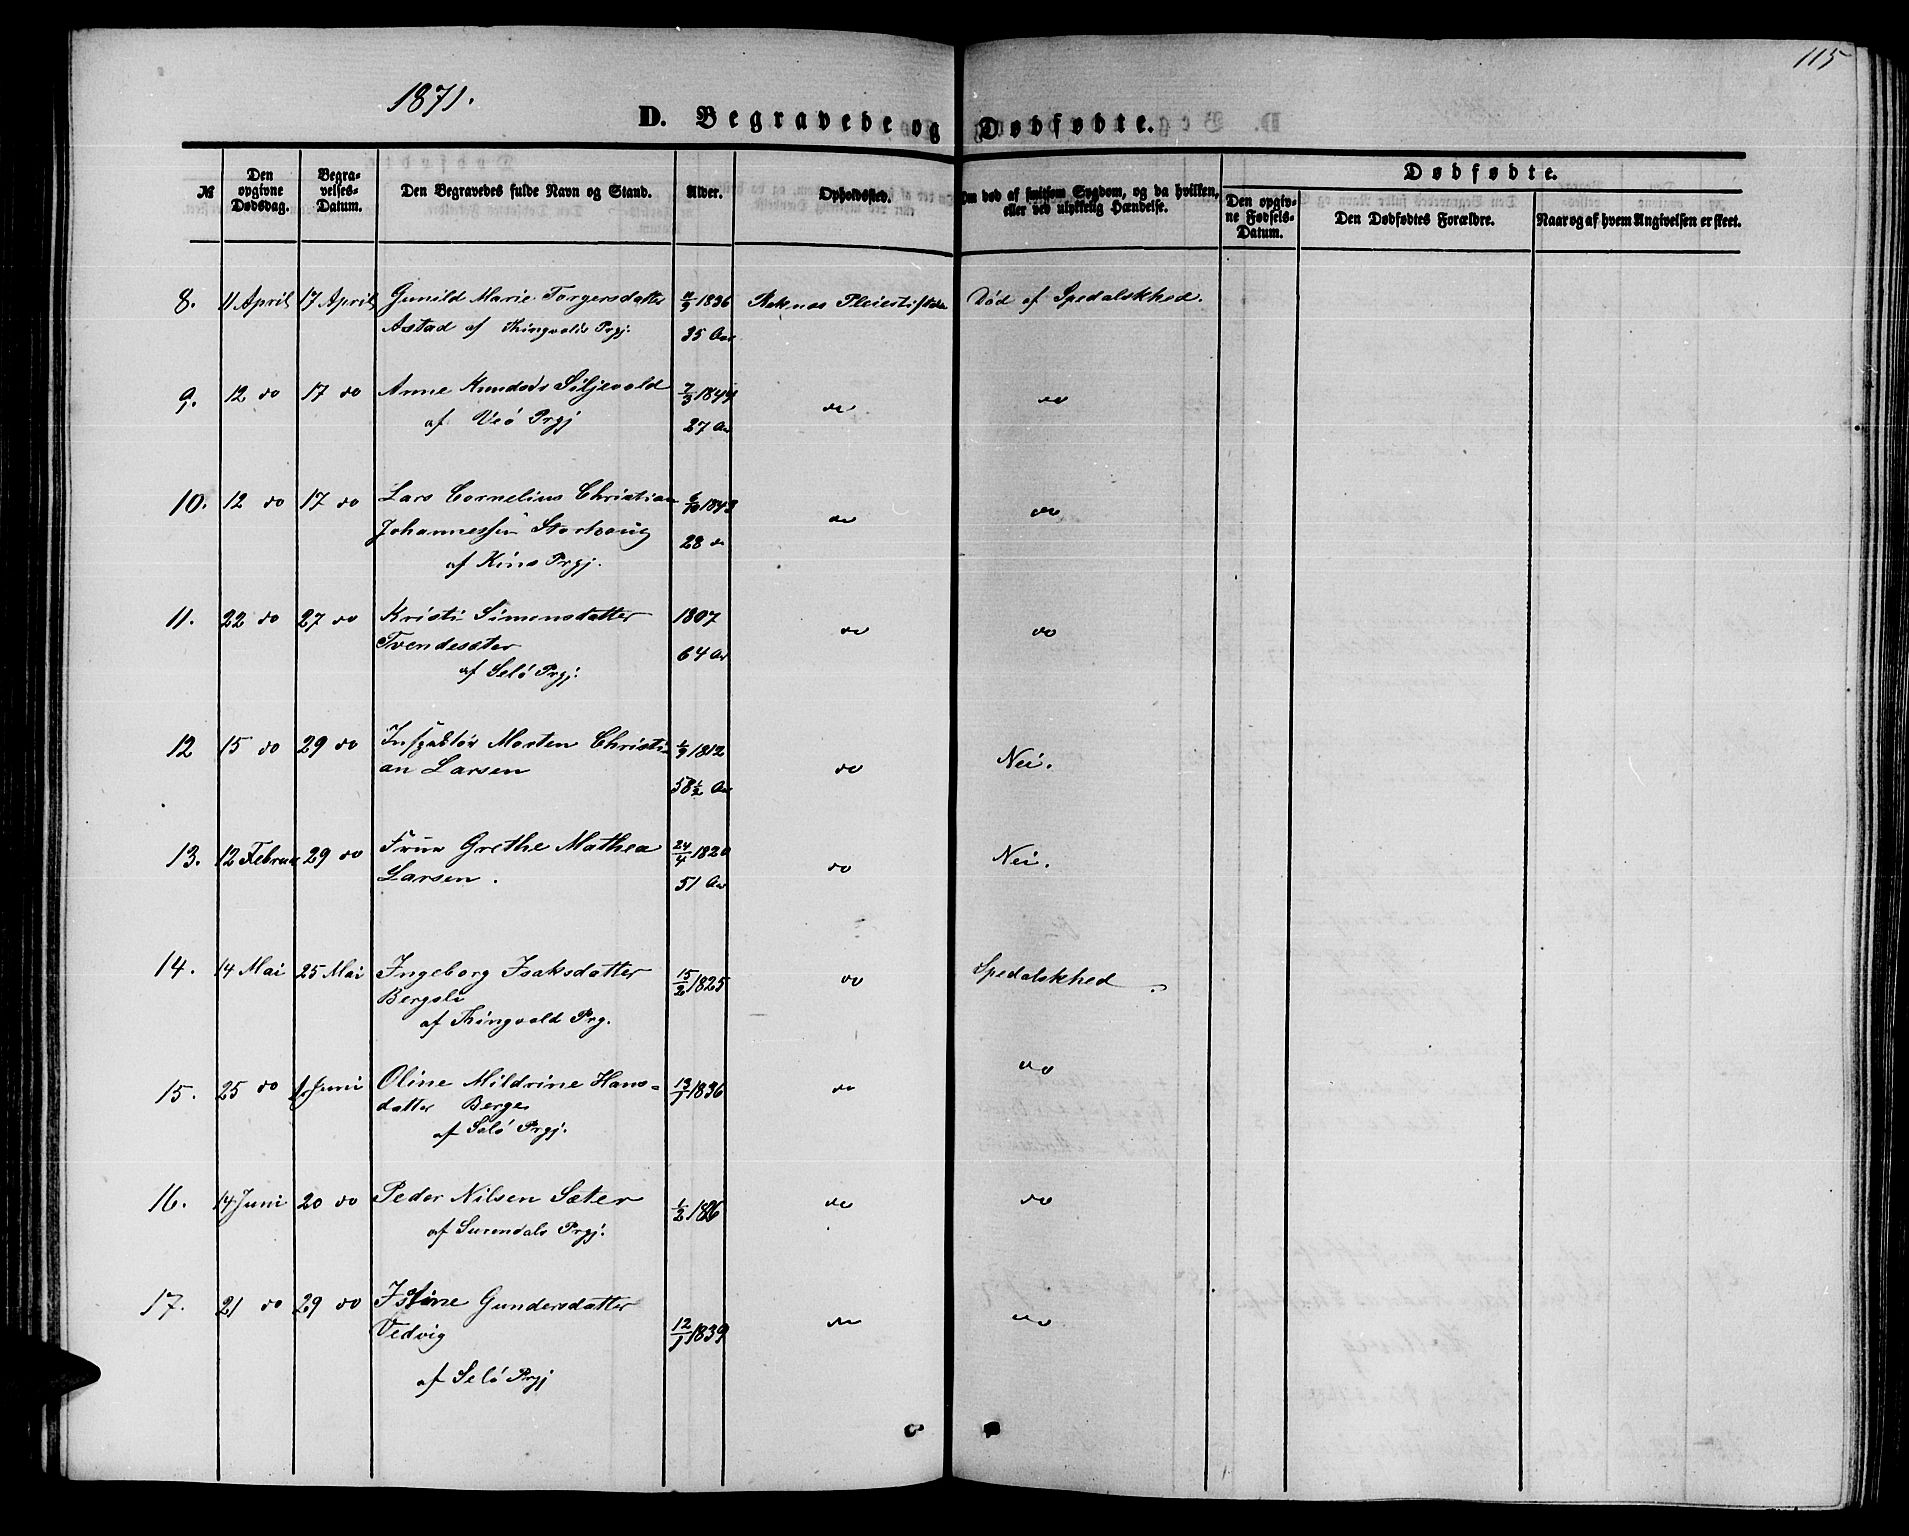 115
1871.
D. Begravede og Dødfødte.
№ Den opgivne Dødsdag. Begravelses-Datum. Den Begravedes fulde Navn og Stand. Alder. Opholdssted. Om død af smitsom Sygdom, og da hvilken, eller ved ulykkelig Hændelse. Dødfødte. Den opgivne Fødsels-Datum. Den Dødfødtes Forældre. Naar og af hvem Angivelsen er skeet.
8. 11 April 17 April Gunild Marie Torgersdatter 1836 Reknæs Pleiestiftelse Død af Spedalskhed.
Astad af Thingvolds Prgj. 35 Aar
9. 12 do 17 do Anne Knudsds Siljevold 7/3 1844 do do
af Veø Prgj 27 Aar
10. 12 do 17 do Lars Cornelius Christian 6/10 1843 do do
Johannessen 28 do
af Kins Prgj.
11. 22 do 27 do Kristi Simensdatter 1807 do do
Tvendesæter 64 Aar
af Selø Prgj.
12 15 do 29 do Inspektør Morten Christi- 1/9 1812 do Nei.
an Larsen 58½ Aar
13. 12 Februar 29 do Frue Grethe Mathea 24/4 1820 do Nei.
Larsen. 51 Aar
14. 14 Mai 25 Mai Ingeborg Isaksdatter 15/2 1825 do Spedalskhed.
Bergsli
af Thingvold Prg.
15. 25 do 1 Juni Oline Mildrine Hans= 13/7 1836 do do
datter Berge
af Selø Prgj.
16. 14 Juni 20 do Peder Nilsen Sæter 1/2 do do
af Surendals Prgj.
17. 21 do 29 do Gundersdatter 12/1 1839 do do
Vedvig
af Selø Prgj